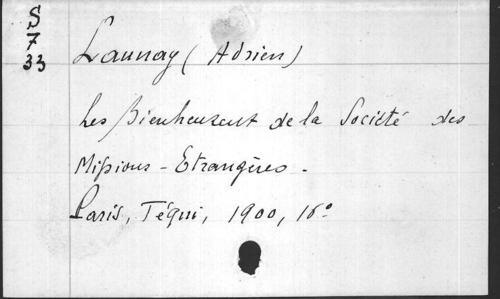 S
7
33
Launay (Adrien)
Les Bienheureux de la Société des
Missions-Etrangères.
Paris, Téqui, 1900, 16°